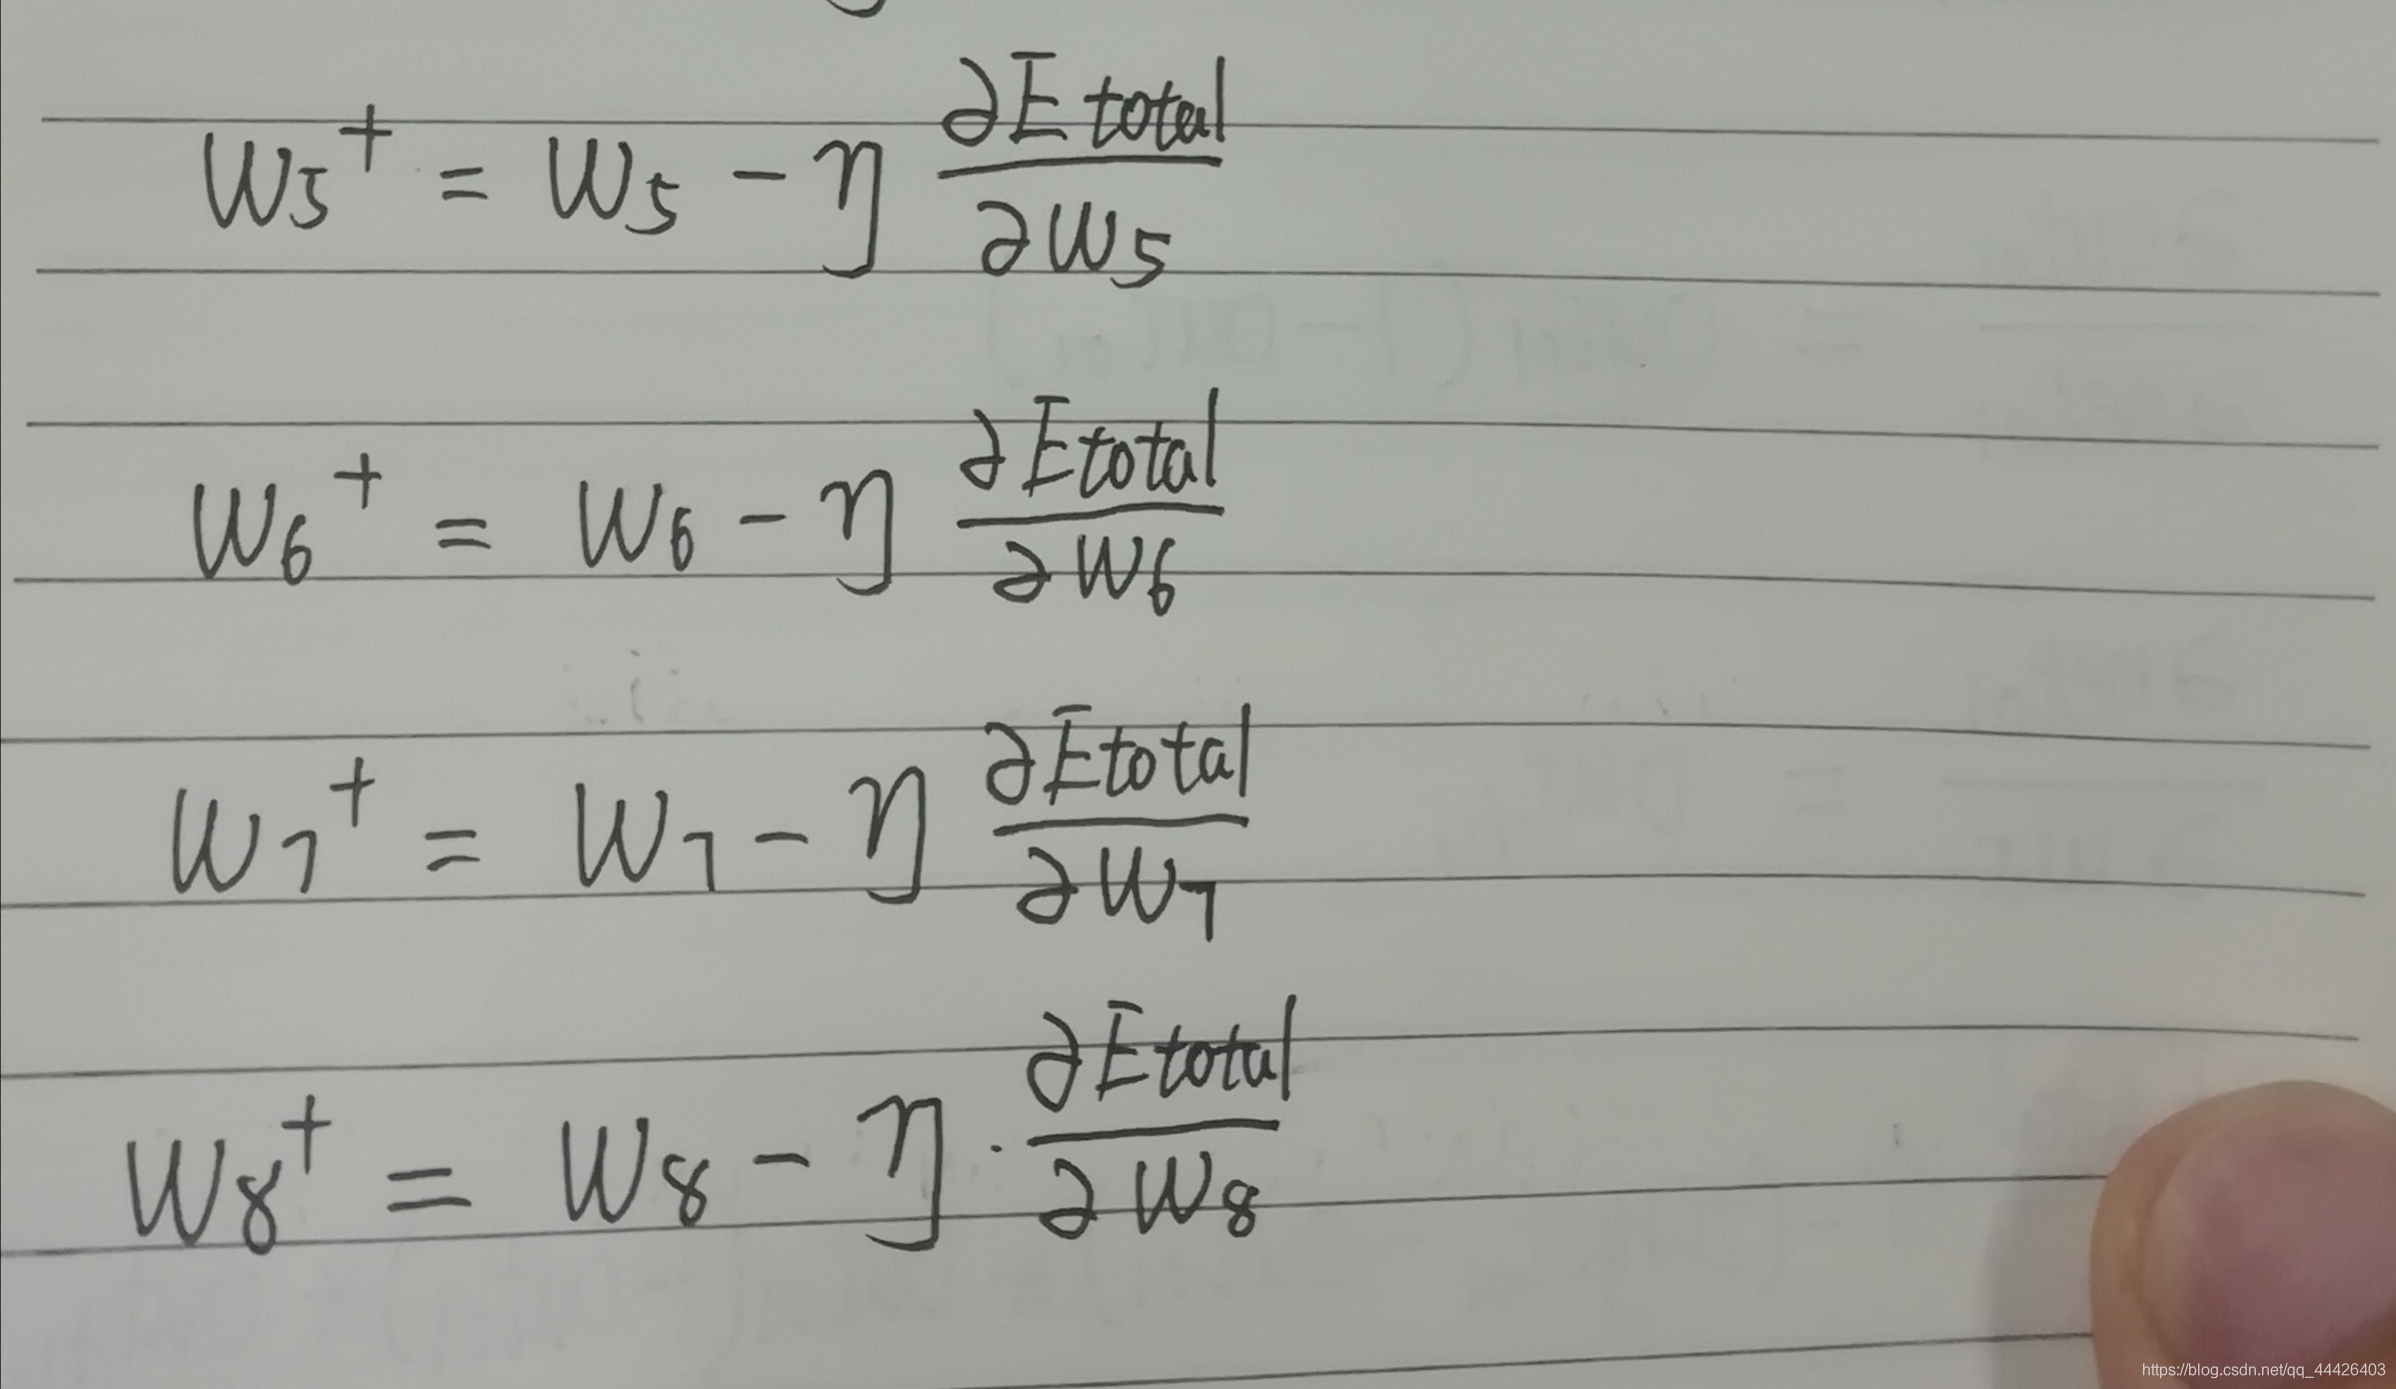 W5⁺ = W5 − η ∂Etotal / ∂W5
W6⁺ = W6 − η ∂Etotal / ∂W6
W7⁺ = W7 − η ∂Etotal / ∂W7
W8⁺ = W8 − η · ∂Etotal / ∂W8
https://blog.csdn.net/qq_44426403